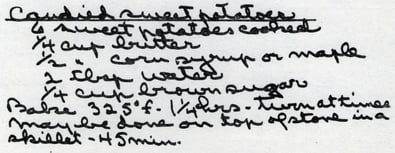 Candied sweet potatoes
6 sweet potatoes cooked
1/4 cup butter
1/2 " corn syrup or maple
2 tbsp water
1/4 cup brown sugar
Bake 325°f - 1 1/4 hrs - turn at times
may be done on top of stove in a
skillet - 45 min.